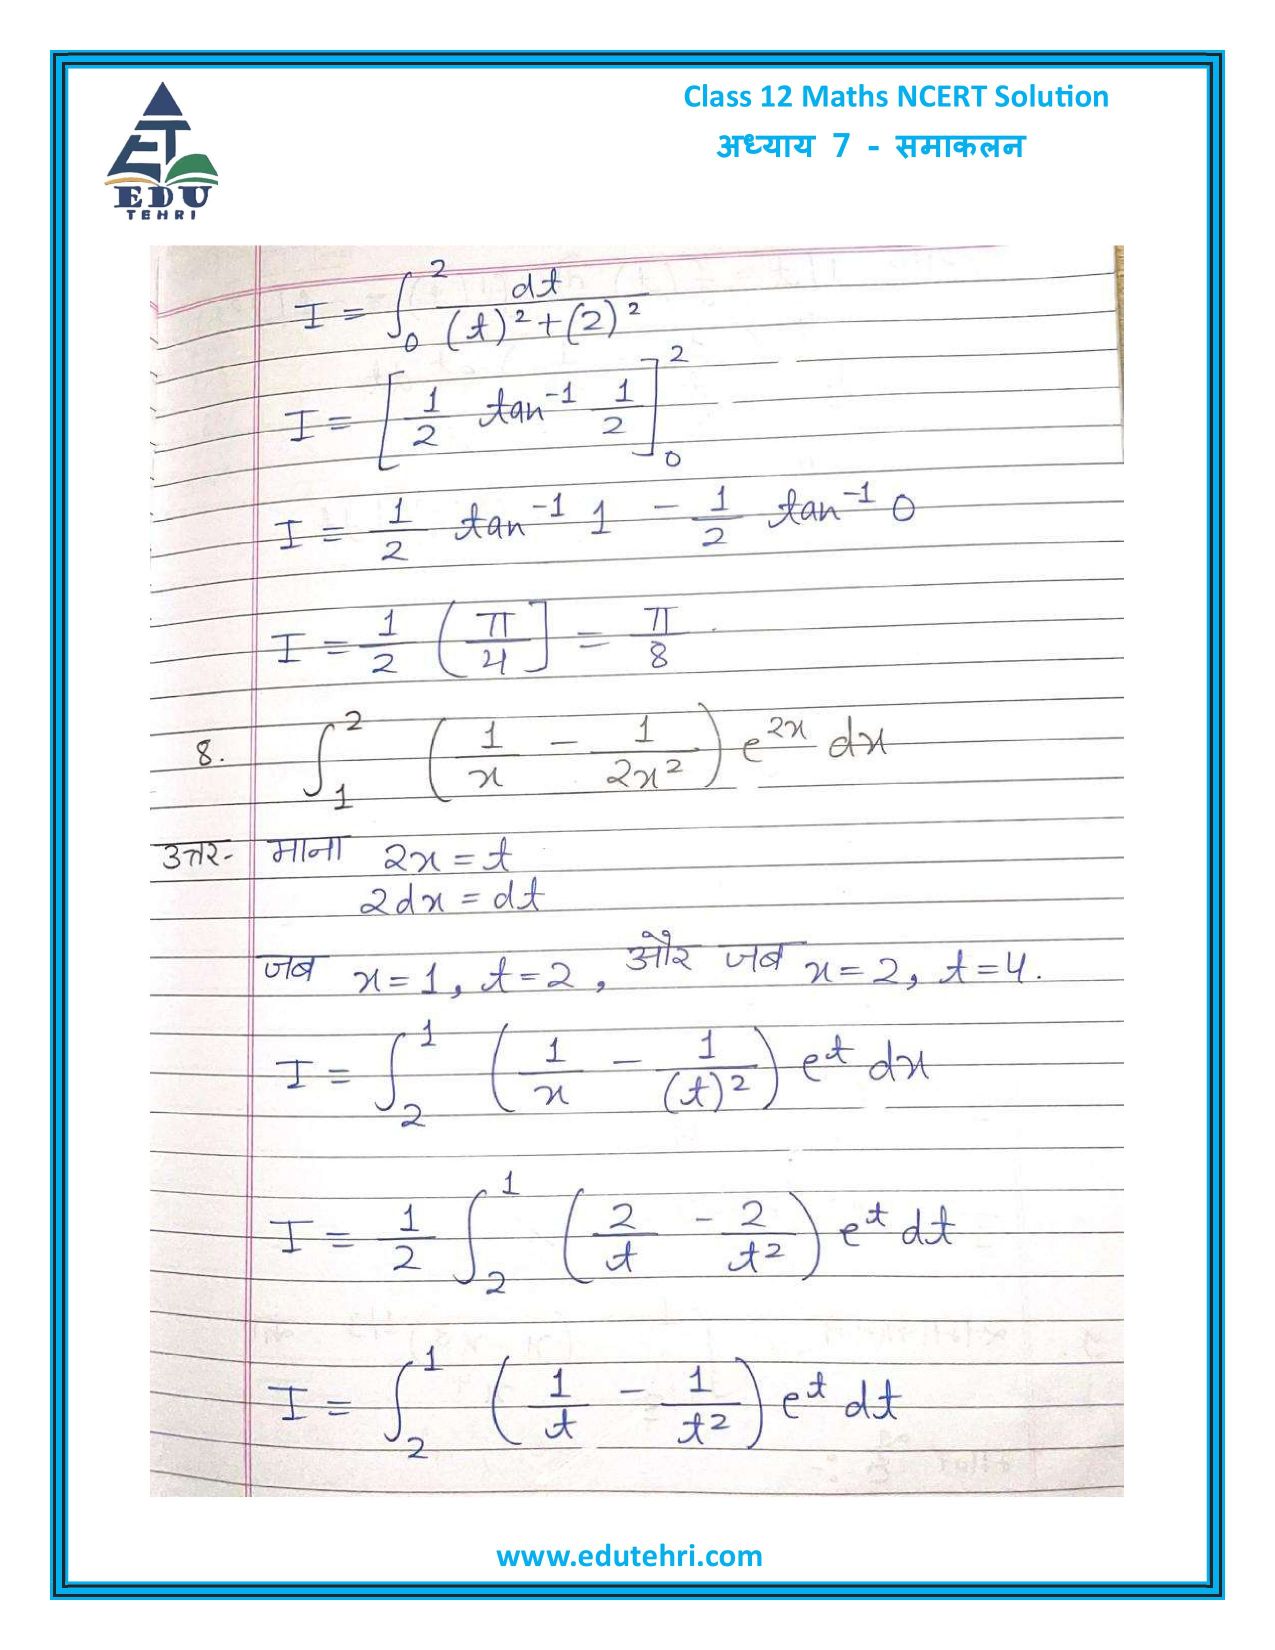 EDU
TEHRI
Class 12 Maths NCERT Solution
अध्याय 7 - समाकलन
I = ∫₀² dt / (t)² + (2)²
I = [1/2 tan⁻¹ 1/2]₀²
I = 1/2 tan⁻¹ 1 − 1/2 tan⁻¹ 0
I = 1/2 (π/4] = π/8
8. ∫₁² (1/x − 1/2x²) e²ˣ dx
उत्तर- माना 2x = t
2dx = dt
जब x = 1, t = 2, और जब x = 2, t = 4.
I = ∫₂¹ (1/x − 1/(t)²) eᵗ dx
I = 1/2 ∫₂¹ (2/t − 2/t²) eᵗ dt
I = ∫₂¹ (1/t − 1/t²) eᵗ dt
www.edutehri.com